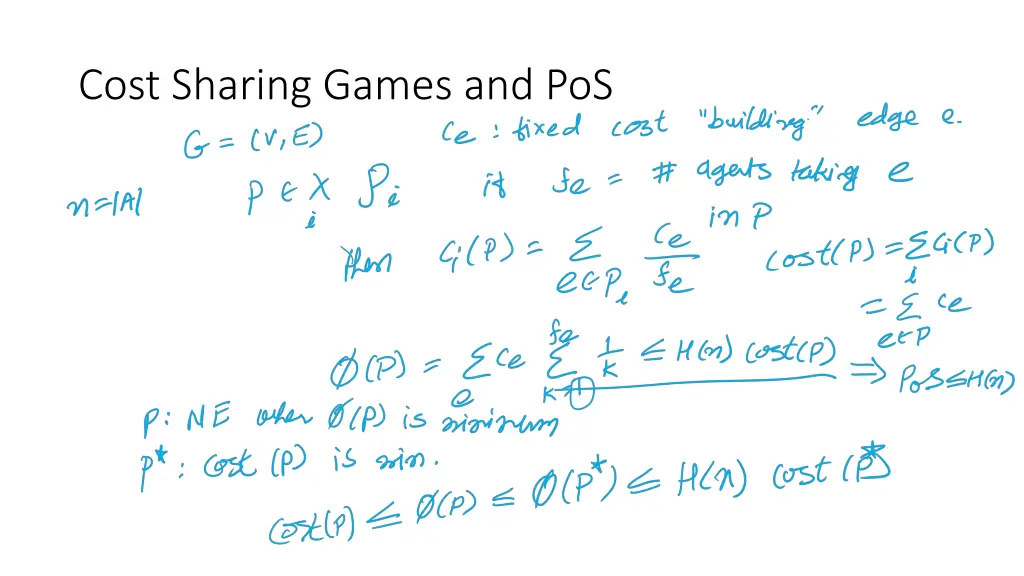 Cost Sharing Games and PoS
G = (V, E) Ce : fixed cost "building" edge e.
n=|A| P ∈ X_i P_i if fe = # agents taking e in P
then Ci(P) = Σ_{e∈P_i} Ce/fe cost(P) = Σ_i Ci(P)
= Σ_{e∈P} Ce
Φ(P) = Σ_e Ce Σ_{k=1}^{fe} 1/k ≤ H(n) cost(P) ⟹ PoS ≤ H(n)
P : NE when Φ(P) is minimum
P* : cost (P) is min.
cost(P) ≤ Φ(P) ≤ Φ(P*) ≤ H(n) cost (P*)